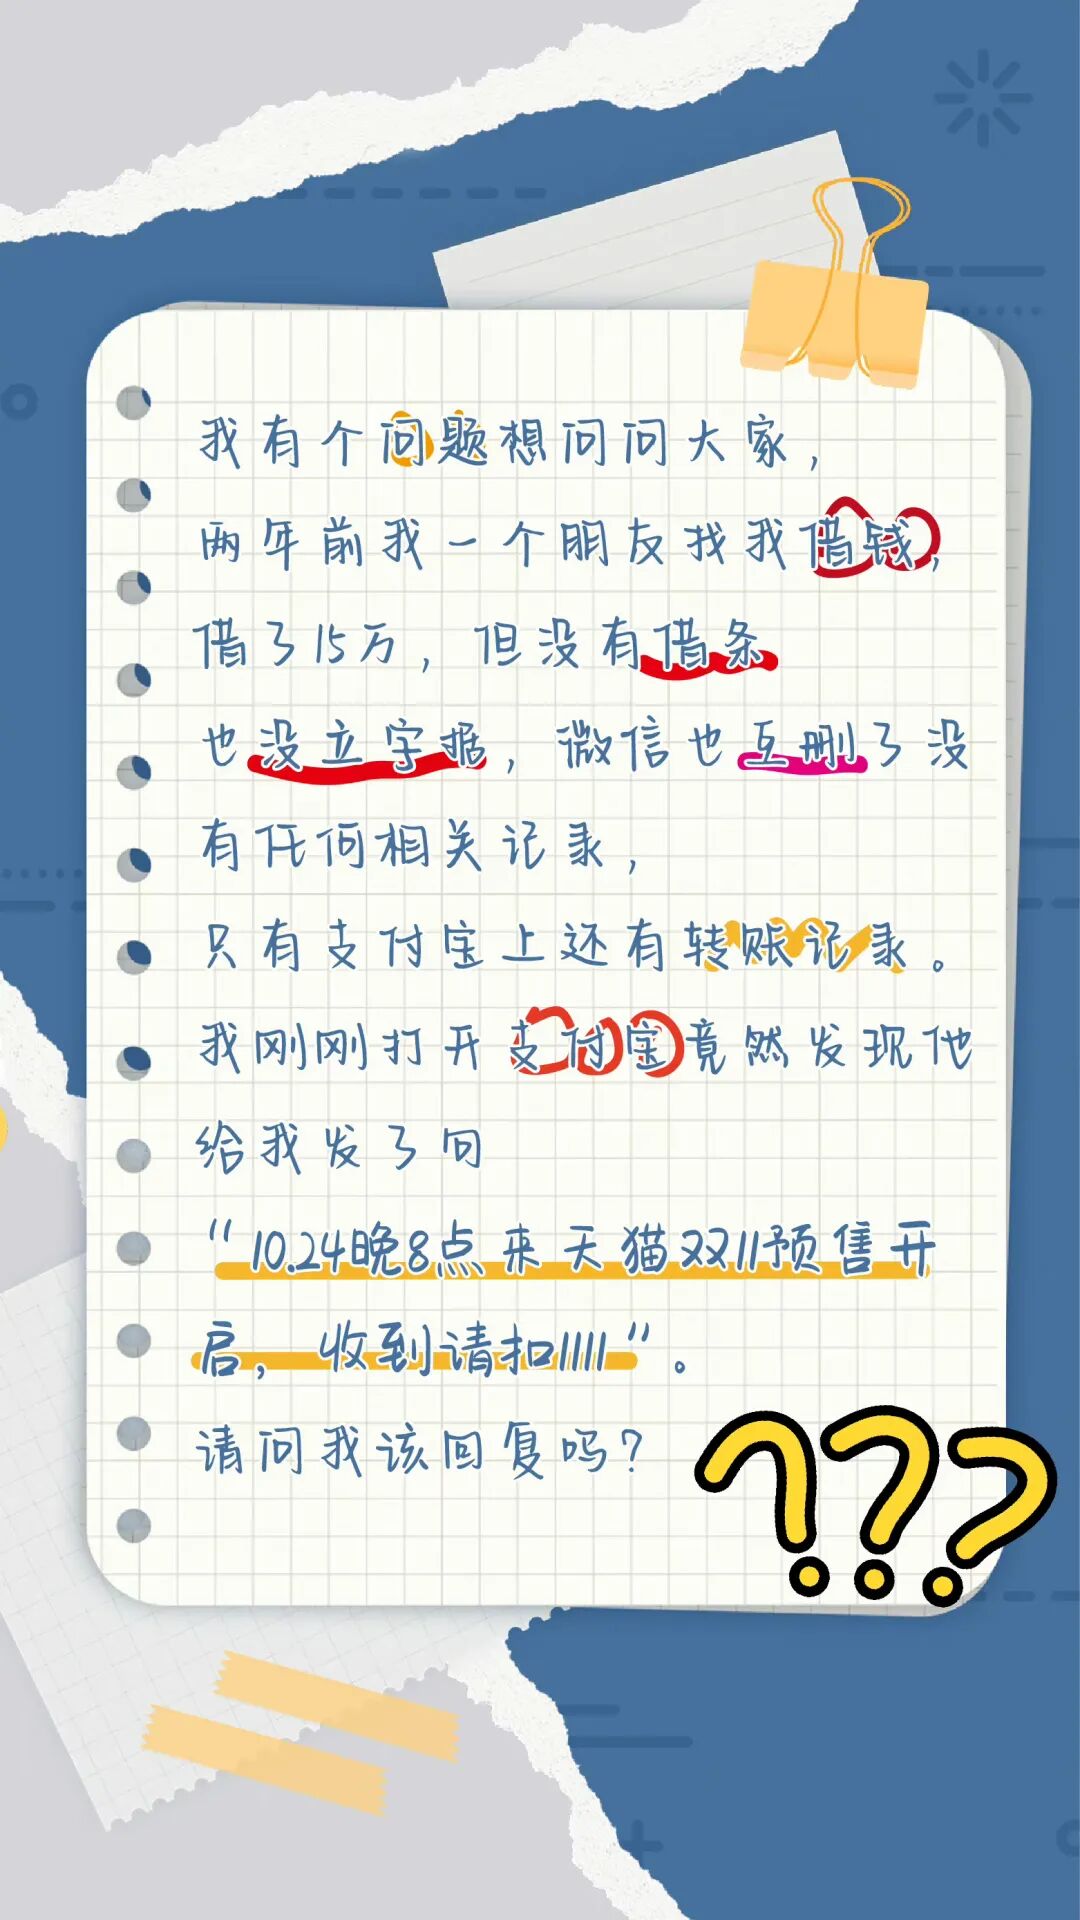 我有个问题想问问大家，
两年前我一个朋友找我借钱，
借了15万，但没有借条
也没立字据，微信也互删了没
有任何相关记录，
只有支付宝上还有转账记录。
我刚刚打开支付宝竟然发现他
给我发了句
“10.24晚8点来天猫双11预售开
启，收到请扣1111”。
请问我该回复吗？
???